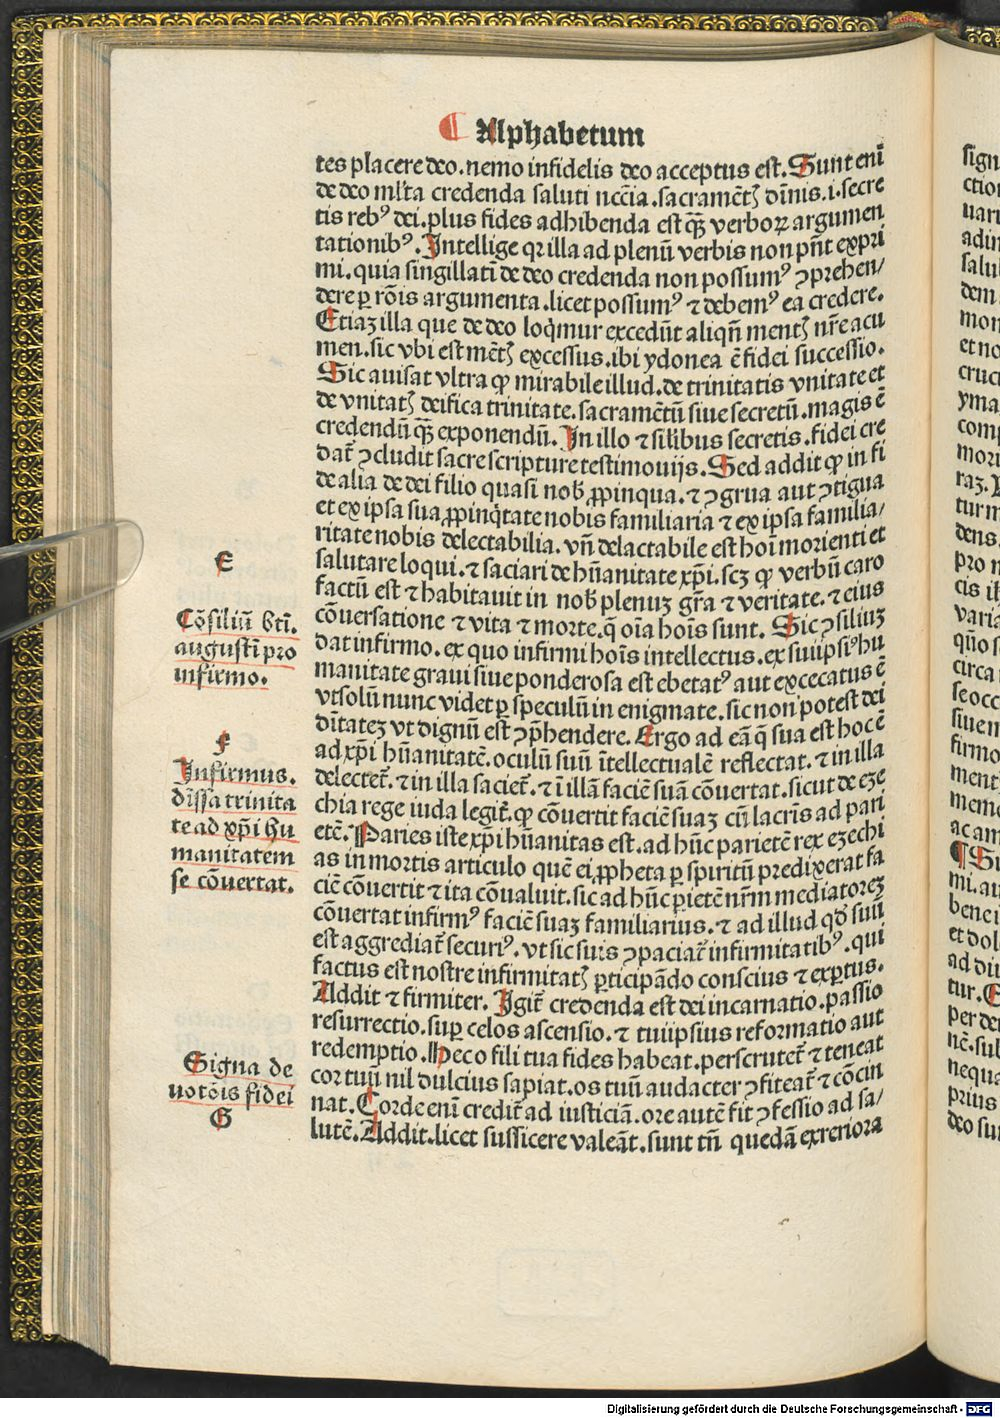 ¶ Alphabetum
tes placere deo. nemo infidelis deo acceptus est. Sunt enī
de deo ml̓ta credenda saluti nccīa. sacramētꝭ dīnis. i. secre
tis rebꝰ dei. plus fides adhibenda est qꝫ̄ verboꝝ argumen
tationibꝰ. Intellige qꝛ illa ad plenū verbis non pn̄t expri
mi. quia singillatī de deo credenda non possumꝰ ꝯprehen/
dere ꝑ rōis argumenta. licet possumꝰ ⁊ debemꝰ ea credere.
Etiaꝫ illa que de deo loqͥmur excedūt aliqn̄ mentꝭ nr̄e acu
men. sic vbi est mētꝭ excessus. ibi ydonea ē fidei successio.
Sic auisat vltra ꝙ mirabile illud. de trinitatis vnitate et
de vnitatꝭ deifica trinitate. sacramētū siue secretū. magis ē
credendū qꝫ̄ exponendū. In illo ⁊ silibus secretis. fidei cre
dat̄ ꝯcludit sacre scripture testimouijs. Sed addit ꝙ in fi
de alia de dei filio quasi nob̄ ꝓpinqua. ⁊ ꝯgrua aut ꝯtigua
et ex ipsa sua ꝓpinqͥtate nobis familiaria ⁊ ex ipsa familia/
ritate nobis delectabilia. vn̄ delactabile est hoī morienti et
salutare loqui. ⁊ saciari de hūanitate xp̄i. scꝫ ꝙ verbū caro
factū est ⁊ habitauit in nob̄ plenuꝫ gr̄a ⁊ veritate. ⁊ eius
cōuersatione ⁊ vita ⁊ morte. q̄ oīa hoīs sunt. Sic ꝯsiliuꝫ
dat infirmo. ex quo infirmi hoīs intellectus. ex suiipsiꝰ hu
manitate graui siue ponderosa est ebetatꝰ aut excecatus ē
vt solū nunc videt ꝑ speculū in enigmate. sic non potest dei
dītateꝫ vt dignū est ꝯp̄hendere. Ergo ad eā q̄ sua est hoc ē
ad xp̄i hūanitatē. oculū suū ītellectualē reflectat. ⁊ in illa
delectet̄. ⁊ in illa saciet̄. ⁊ ī illā faciē suā cōuertat. sicut de eze
chia rege iuda legit̄. ꝙ cōuertit faciē suaꝫ cū lacrīs ad pari
etē. Paries iste xp̄i hūanitas est. ad hūc parietē rex ezechi
as in mortis articulo quē ei ꝓpheta ꝑ spiritū predixerat fa
ciē cōuertit ⁊ ita cōualuit. sic ad hūc ꝑietē nr̄m mediatoreꝫ
cōuertat infirmꝰ faciē suaꝫ familiarius. ⁊ ad illud qd̄ suū
est aggrediat̄ securiꝰ. vt sic suis ꝯpaciat̄ infirmitatibꝰ. qui
factus est nostre infirmitatꝭ ꝑticipādo conscius ⁊ exꝑtus.
Addit ⁊ firmiter. Igit̄ credenda est dei incarnatio. passio
resurrectio. suꝑ celos ascensio. ⁊ tuiipsius reformatio aut
redemptio. Hec o fili tua fides habeat. perscrutet̄ ⁊ teneat
cor tuū nil dulcius sapiat. os tuū audacter ꝯfiteat̄ ⁊ cōcin
nat. Corde enī credit̄ ad iusticiā. ore autē fit ꝯfessio ad sa/
lutē. Addit. licet sufficere valeāt. sunt tn̄ quedā exreriora
E
Cōsiliū bti.
augustī pro
infirmo.
F
Infirmus.
dīssa trinita
te ad xp̄i hu
manitatem
se cōuertat.
Signa de
uotōis fidei
G
Digitalisierung gefördert durch die Deutsche Forschungsgemeinschaft - DFG